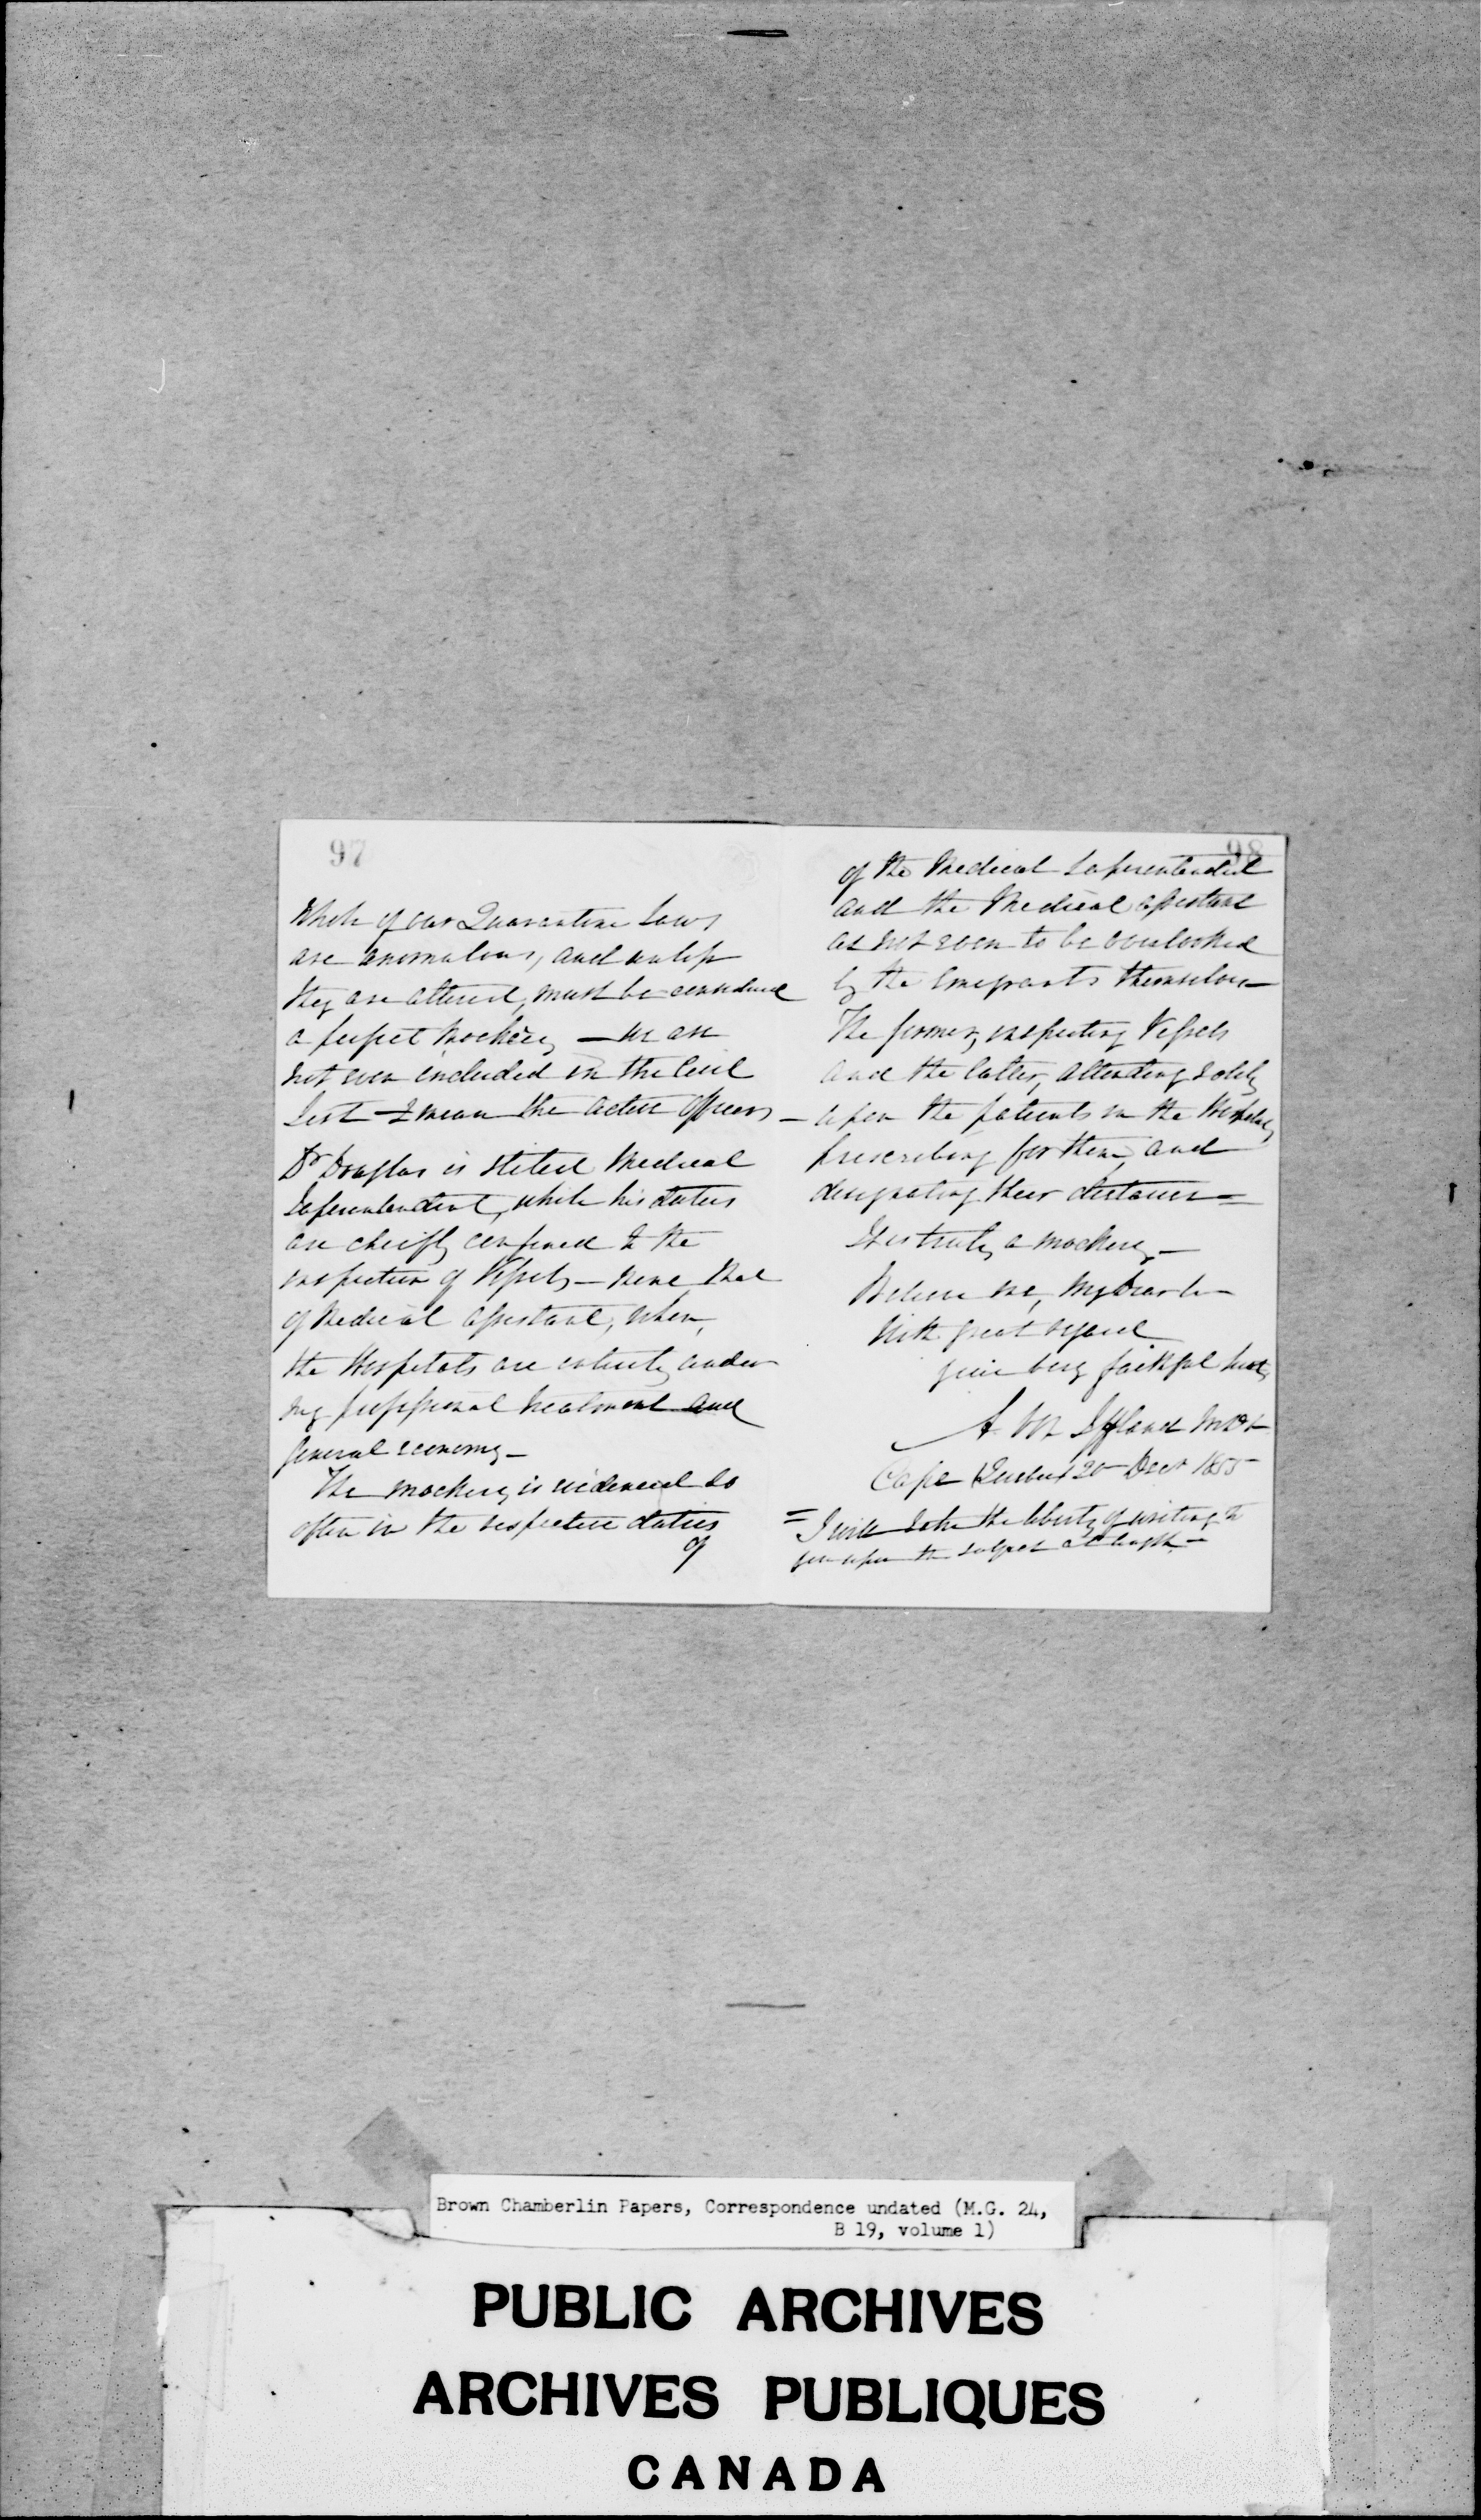 97
Whole of our Quarantine Laws
are anomalous, and unless
they are altered, must be considered
a perfect mockery — we are
not even included in the Civil
List — I mean the active officers —
Dr Douglas is stiled Medical
Superintendent, while his duties
are chiefly confined to the
inspection of Vessels — mine that
of Medical assistant, when,
the Hospitals are entirely under
my professional treatment and
general economy —
The mockery is evidenced so
often in the respective duties
of
98
of the Medical Superintendent
and the Medical assistant
as not even to be overlooked
by the Emigrants themselves —
The former, inspecting Vessels
and the latter, attending solely
upon the patients in the Hospitals,
prescribing for them and
designating their
It is truly a mockery —
Believe me, My Dear Sir
With great regard
your very faithful
A Von Iffland
Cape Quebec 20 Decr 1855
= I will take the liberty of writing to
you upon the subject at length —
Brown Chamberlin Papers, Correspondence undated (M.G. 24,
B 19, volume 1)
PUBLIC ARCHIVES
ARCHIVES PUBLIQUES
CANADA